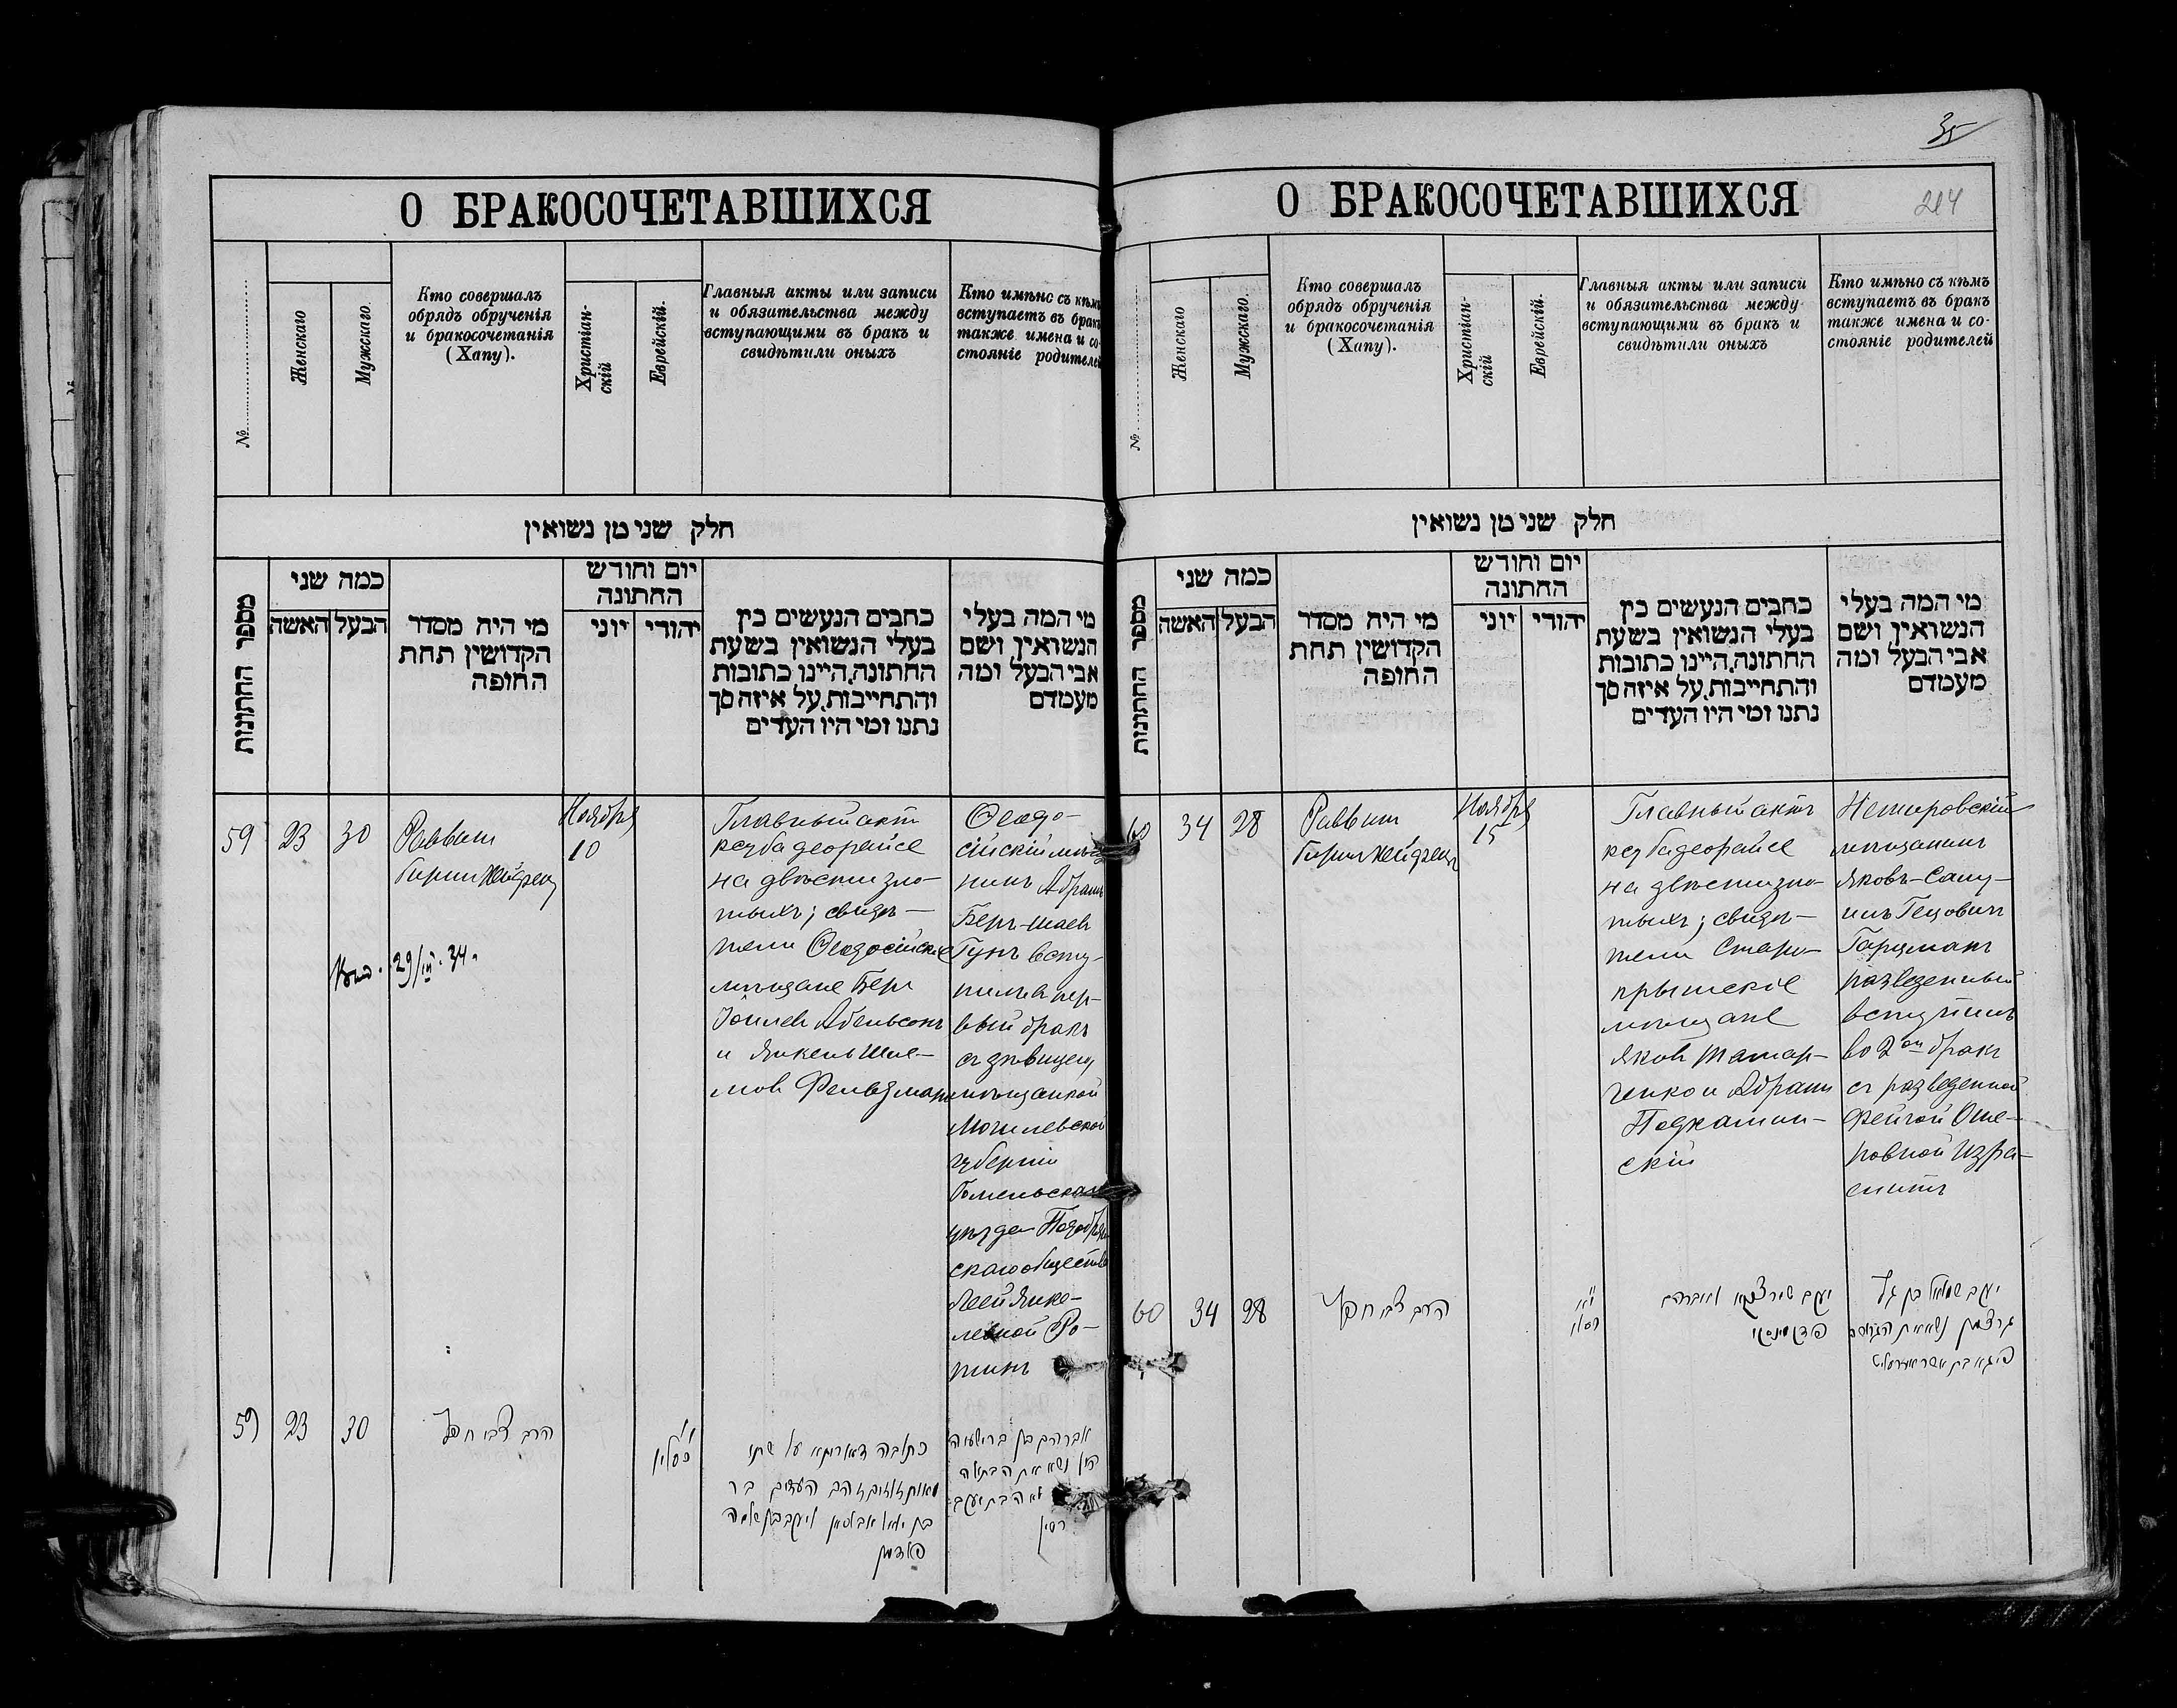 35
О БРАКОСОЧЕТАВШИХСЯ
№
Женскаго
Мужскаго
Кто совершалъ
обрядъ обрученія
и бракосочетанія
(Хапу).
Христіан-
скій
Еврейскій.
Главныя акты или записи
и обязательства между
вступающими въ бракъ и
свидѣтили оныхъ
Кто имѣнс съ кѣмъ
вступаетъ въ бракъ
также имена и со-
стояніе родителей
חלק שני מן נשואין
מספר החתונות
כמה שני
האשה
הבעל
מי היה מסדר
הקדושין תחת
החופה
יום וחודש
החתונה
יוני
יהודי
כתבים הנעשים בין
בעלי הנשואין בשעת
החתונה, היינו כתובות
והתחייבות, על איזה סך
נתנו ומי היו העדים
מי המה בעלי
הנשואין ושם
אבי הבעל ומה
מעמדם
59
23
30
Раввин
Ноября
10
Главный акт
кетуба деорайсе
на двѣсти зло-
тыхъ; свидѣ-
тели Ѳеодосійскіе
мѣщане Бер
Абельсонъ
и Янкель Шле-
мов Фельдман
Ѳеодо-
сійскій мѣща-
нинъ Абрамъ
Беръ-Шаев
Гунъ всту-
пилъ в пер-
вый бракъ
съ дѣвицею
мѣщанкой
Могилевской
губерніи
Гомельскаго
уѣзда
скаго общества
Леей Янке-
левной Ро-
тинъ
29/III 34.
59
23
30
הרב צבי
כסליו
כתובה דאורייתא על שתי
מאות זהובים העדים בר
אברהם בן בר ישעיה
נשא את הבתולה
לאה בת יעקב
О БРАКОСОЧЕТАВШИХСЯ
214
№
Женскаго
Мужскаго
Кто совершалъ
обрядъ обрученія
и бракосочетанія
(Хапу).
Христіан-
скій
Еврейскій.
Главныя акты или записи
и обязательства между
вступающими въ бракъ и
свидѣтили оныхъ
Кто имѣно съ кѣмъ
вступаетъ въ бракъ
также имена и со-
стояніе родителей
חלק שני מן נשואין
מספר החתונות
כמה שני
האשה
הבעל
מי היה מסדר
הקדושין תחת
החופה
יום וחודש
החתונה
יוני
יהודי
כתבים הנעשים בין
בעלי הנשואין בשעת
החתונה, היינו כתובות
והתחייבות, על איזה סך
נתנו ומי היו העדים
מי המה בעלי
הנשואין ושם
אבי הבעל ומה
מעמדם
60
34
28
Раввин
Ноября
15
Главный актъ
кетуба деорайсе
на двѣсти зло-
тыхъ; свидѣ-
тели Старо-
крымскіе
мѣщане
Яков Татар-
ченко и Абрам
Подкамин-
скій
Немировскій
мѣщанинъ
Яковъ-Саму-
илъ Гецовичъ
Гарцманъ
разведенный
вступилъ
во 2ой бракъ
съ разведенной
Фейгой Оше-
ровной Изра-
елитъ
60
34
28
הרב צבי
יעקב שמואל בן גץ
גרצמן נשא את הגרושה
פיגא בת אשר